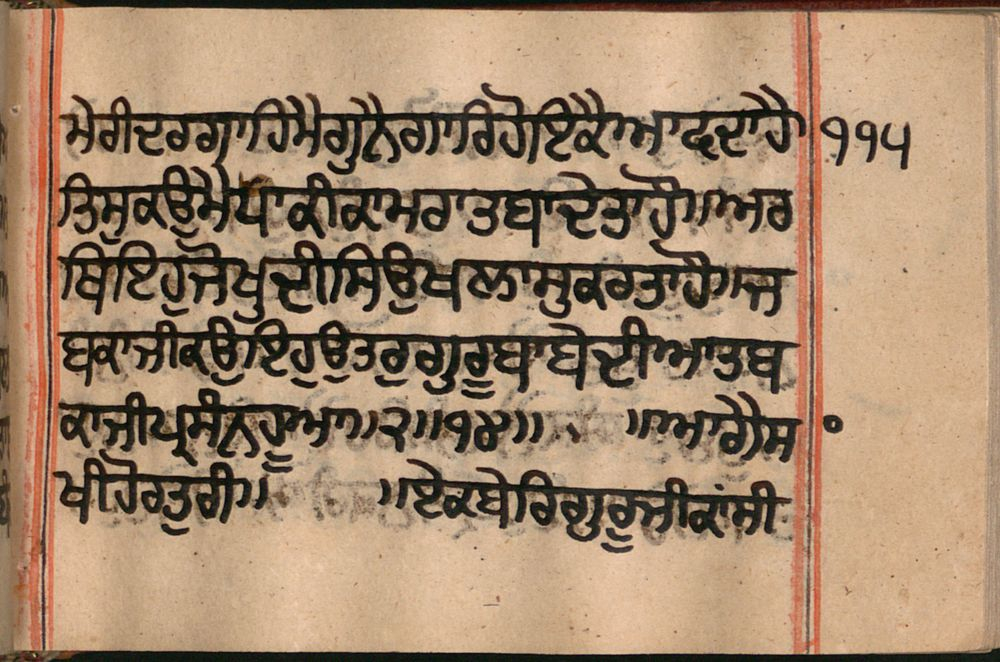 ਮੇਰੀਦਰਗਾਹਿਮੈਗੁਨੈਗਾਰਿਹੋਇਕੈਆਵਦਾਹੈ ੧੧੫
ਤਿਸੁਕਉਮੈਪਾਕੀਕਾਮਰਾਤਬਾਦੇਤਾਹੌ॥ਅਰ
ਬਿਇਹੁਜੋਖੁਦੀਸਿਉਖਲਾਸੁਕਰਤਾਹੈ॥ਜ
ਬਕਾਜੀਕਉਇਹੁਉਤਰੁਗੁਰੂਬਾਬੇਦੀਆਤਬ
ਕਾਜੀਪ੍ਰਸੰਨਹੂਆ॥੨॥੧੪॥ ॥ਆਗੈਸ
ਖੀਹੋਰਤੁਰੀ॥ ॥ਏਕਬੇਰਿਗੁਰੂਜੀਕਾਂਸੀ